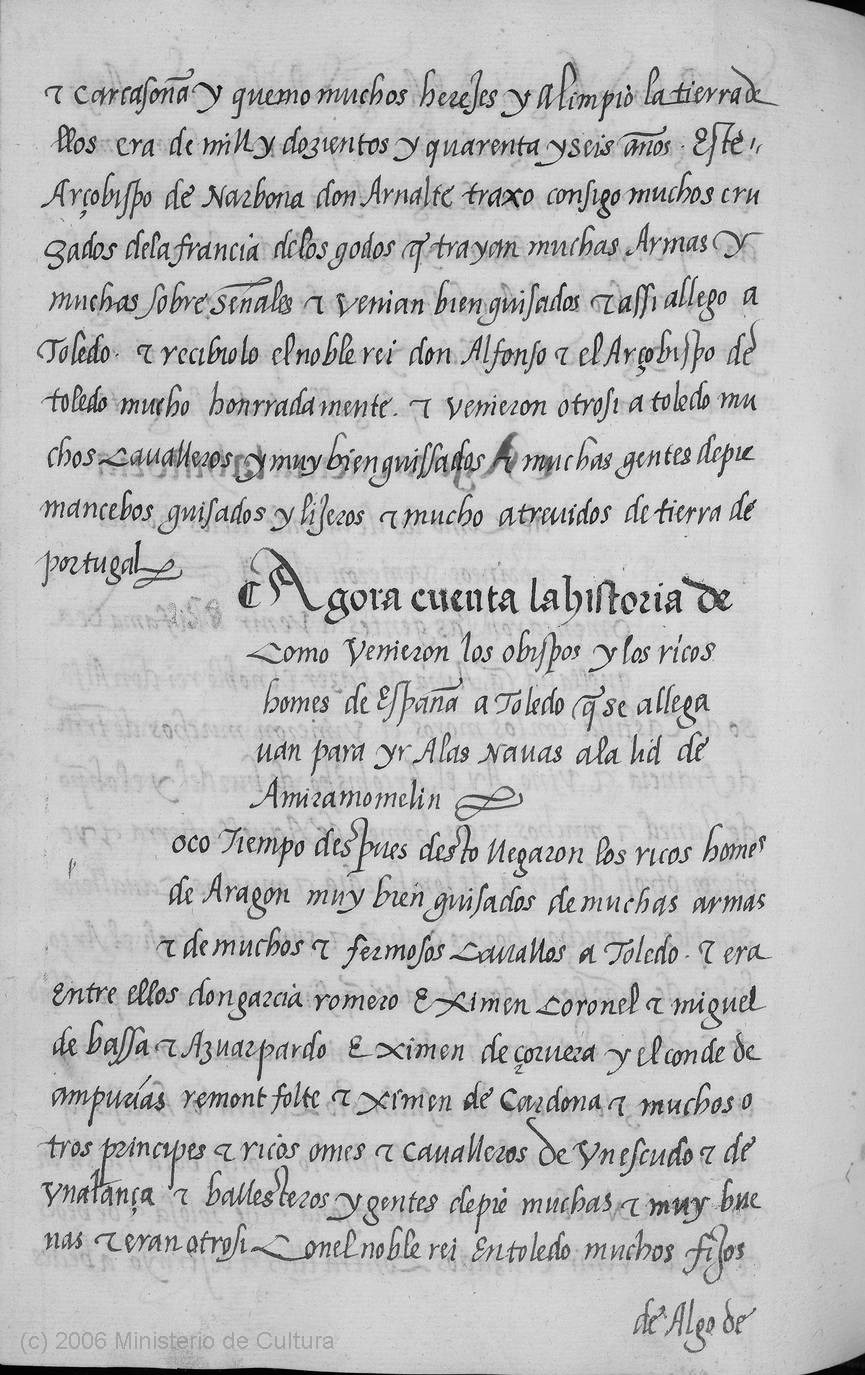 ⁊ Carcasoña y quemo muchos herejes y Alimpiò la tierra de
llos era de mill y dozientos y quarenta y seis años. Este
Arçobispo de Narbona don Arnalte traxo consigo muchos cru
zados dela francia delos godos q̃ trayan muchas Armas y
muchas sobre señales ⁊ venian bien guisados ⁊ assi allego a
Toledo. ⁊ recibiolo el noble rei don Alfonso ⁊ el Arçobispo de
toledo mucho honrradamente. ⁊ venieron otrosi a toledo mu
chos Cavalleros y muy bien guissados ⁊ muchas gentes de pie
mancebos guisados y lijeros ⁊ mucho atrevidos de tierra de
portugal
Agora cuenta la historia de
Como Venieron los obispos y los ricos
homes de España a Toledo q̃ se allega
uan para yr Alas Navas ala lid de
Amiramomelin
oco Tiempo despues desto llegaron los ricos homes
de Aragon muy bien guisados de muchas armas
⁊ de muchos ⁊ fermosos Cauallos a Toledo. ⁊ era
Entre ellos don garcia romero E Ximen Coronel ⁊ miguel
de bassa ⁊ Aznar pardo E Ximen de çorvera y el conde de
ampurias remont folte ⁊ Ximen de Cardona ⁊ muchos o
tros principes ⁊ ricos omes ⁊ Cavalleros de Vn escudo ⁊ de
Vna lança ⁊ ballesteros y gentes de pie muchas ⁊ muy bue
nas ⁊ eran otrosi Con el noble rei En toledo muchos fijos
de Algo de
(c) 2006 Ministerio de Cultura